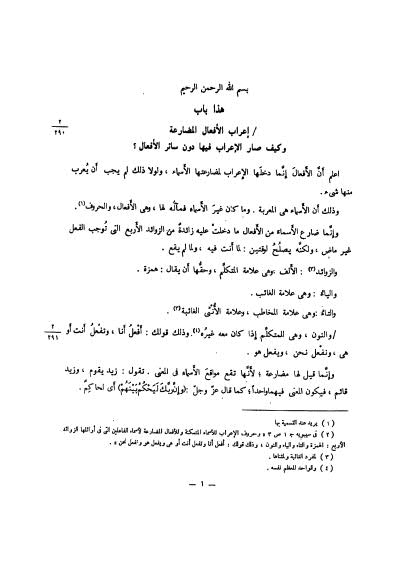 بسم الله الرحمن الرحيم
هذا باب
٢
٢٩٠
/ إعراب الأفعال المضارعة
وكيف صار الإعراب فيها دون سائر الأفعال ؟
اعلم أَنَّ الأَفعالَ إِنَّما دخلَها الإِعراب لمضارعتها الأَسماء ، ولولا ذلك لم يجب أَن يُعرب
منها شىء .
وذلك أَن الأَسماء هى المعربة . وما كان غيرَ الأَسماء فمآلُه لها ، وهى الأَفعال ، والحروف(١) .
وإِنَّما ضارع الأَسماء من الأَفعال ما دخلتْ عليه زائدةٌ من الزوائد الأَربع التى تُوجب الفعل
غيرَ ماضٍ ، ولكنَّه يصلُحُ لوقتين : لما أَنت فيه ، ولما لم يقع .
والزوائد(٢) : الأَلف : وهى علامة المتكلِّم ، وحقُّها أَن يقال : همزة .
والياءُ : وهى علامة الغائب .
والتاءُ : وهى علامة المخاطب ، وعلامة الأُنثى الغائبة (٣) .
٢
٢٩١
/والنون ، وهى للمتكلِّم إِذا كان معه غيرُه(٤) . وذلك قولك : أَفعلُ أَنا ، وتفعلُ أَنت أَو
هى ، ونفعل نحن ، ويفعل هو .
وإِنَّما قيل لها مضارعة ؛ لأَنَّها تقع مواقعَ الأَسماء فى المعنى . تقول : زيد يقوم ، وزيد
قائم ، فيكون المعنى فيهما واحداً ؛ كما قال عزَّ وجلَّ : (وَإِنَّ رَبَّكَ لَيَحْكُمُ بَيْنَهُمْ) أَى لحاكمٌ .
( ١ ) يريد عند التسمية بها
( ٢ ) فى سيبويه ج ١ ص ٣ « وحروف الإعراب للأسماء المتمكنة وللأفعال المضارعة لأسماء الفاعلين التى فى أوائلها الزوائد
الأربع : الهمزة والتاء والياء والنون ، وذلك قولك : أفعل أنا وتفعل أنت أو هى ويفعل هو ونفعل نحن » .
( ٣ ) لمفرد الغائبة ومثناها .
( ٤ ) والواحد المعظم نفسه .
— ١ —